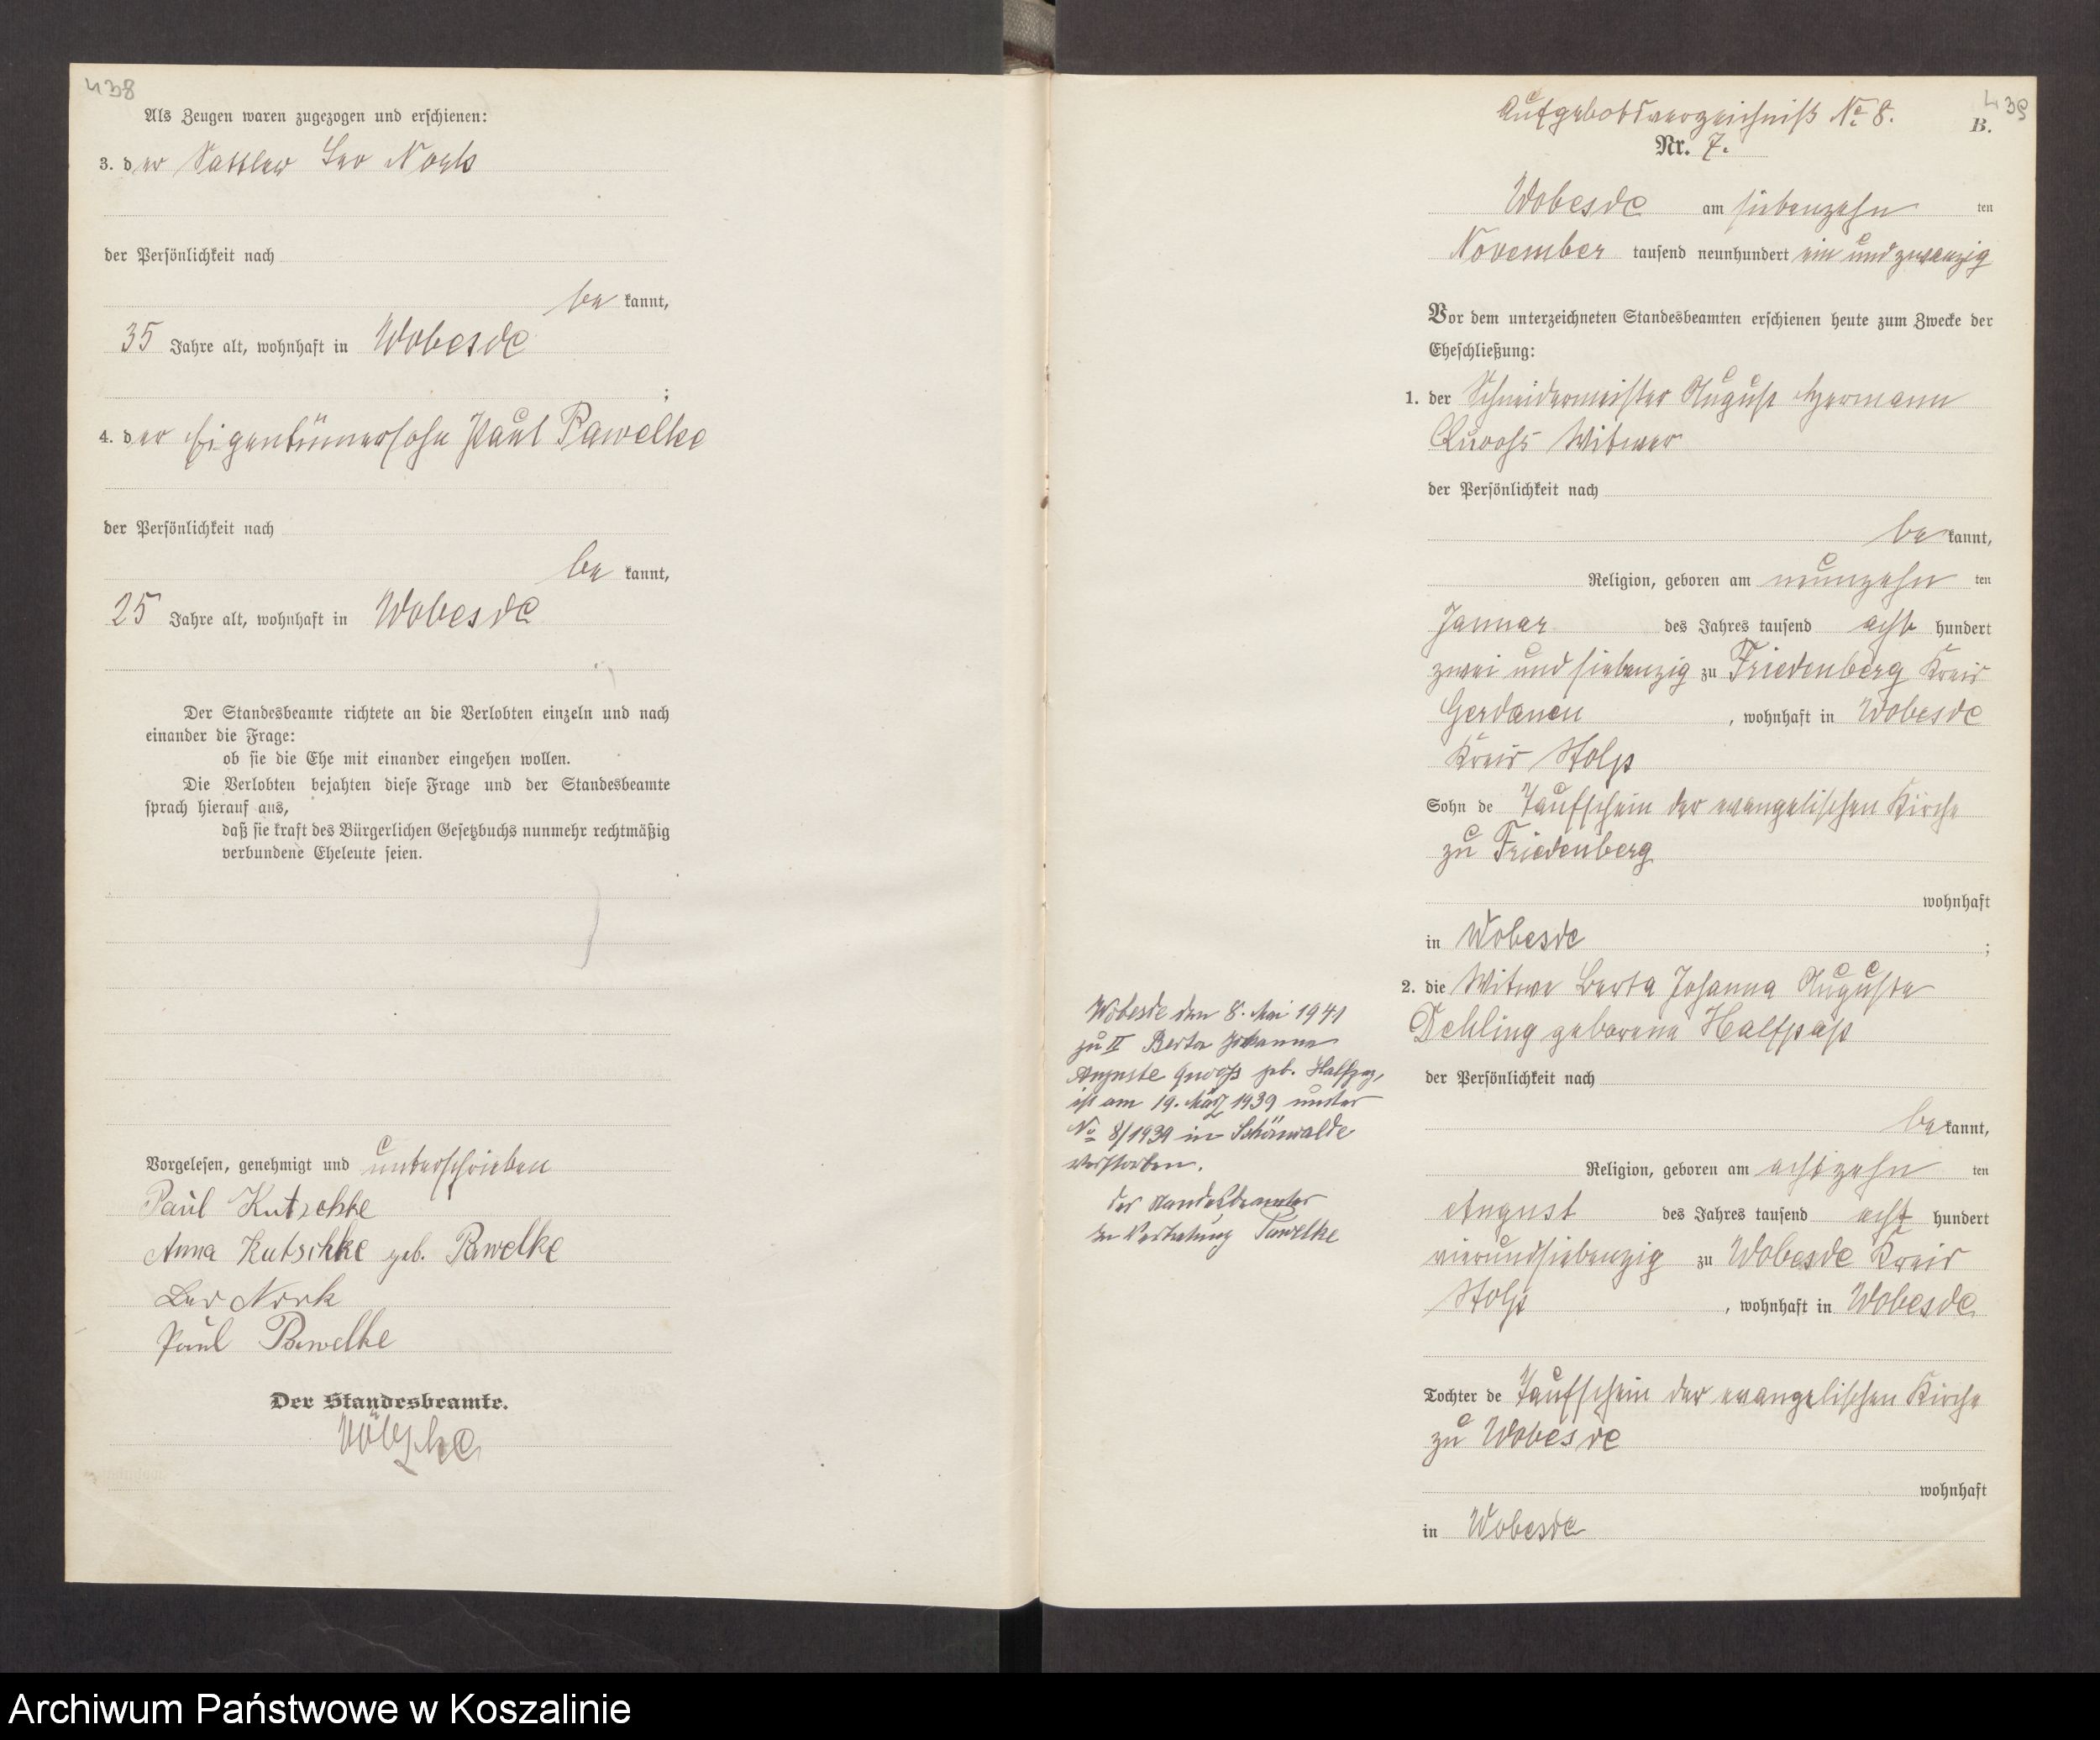 438
Als Zeugen waren zugezogen und erschienen:
3. der Sattler Leo Nork
der Persönlichkeit nach
be kannt,
35 Jahre alt, wohnhaft in Wobesde
;
4. der Eigentümersohn Paul Pawelke
der Persönlichkeit nach
be kannt,
25 Jahre alt, wohnhaft in Wobesde
Der Standesbeamte richtete an die Verlobten einzeln und nach
einander die Frage:
ob sie die Ehe mit einander eingehen wollen.
Die Verlobten bejahten diese Frage und der Standesbeamte
sprach hierauf aus,
daß sie kraft des Bürgerlichen Gesetzbuchs nunmehr rechtmäßig
verbundene Eheleute seien.
Vorgelesen, genehmigt und unterschrieben
Paul Kutschke
Anna Kutschke geb. Pawelke
Leo Nork
Paul Pawelke
Der Standesbeamte.
439
Aufgebotsverzeichniß No 8.
B.
Nr. 7.
Wobesde am siebenzehn ten
November tausend neunhundert ein und zwanzig
Vor dem unterzeichneten Standesbeamten erschienen heute zum Zwecke der
Eheschließung:
1. der Schneidermeister August Hermann
Quooß Witwer
der Persönlichkeit nach
be kannt,
Religion, geboren am neunzehn ten
Januar des Jahres tausend acht hundert
zwei und siebenzig zu Friedenberg Kreis
Gerdauen , wohnhaft in Wobesde
Kreis Stolp
Sohn de Taufschein der evangelischen Kirche
zu Friedenberg
wohnhaft
in Wobesde ;
2. die Witwe Berta Johanna Auguste
Dehling geborene Halfpap
der Persönlichkeit nach
be kannt,
Religion, geboren am achtzehn ten
August des Jahres tausend acht hundert
vierundsiebenzig zu Wobesde Kreis
Stolp , wohnhaft in Wobesde
Tochter de Taufschein der evangelischen Kirche
zu Wobesde
wohnhaft
in Wobesde
Wobesde den 8. Mai 1941
zu II Berta Johanna
Auguste Quooß geb. Halfpap,
ist am 19. März 1939 unter
No 8/1939 in Schönwalde
verstorben.
Der Standesbeamte
In Vertretung Pawelke
Archiwum Państwowe w Koszalinie